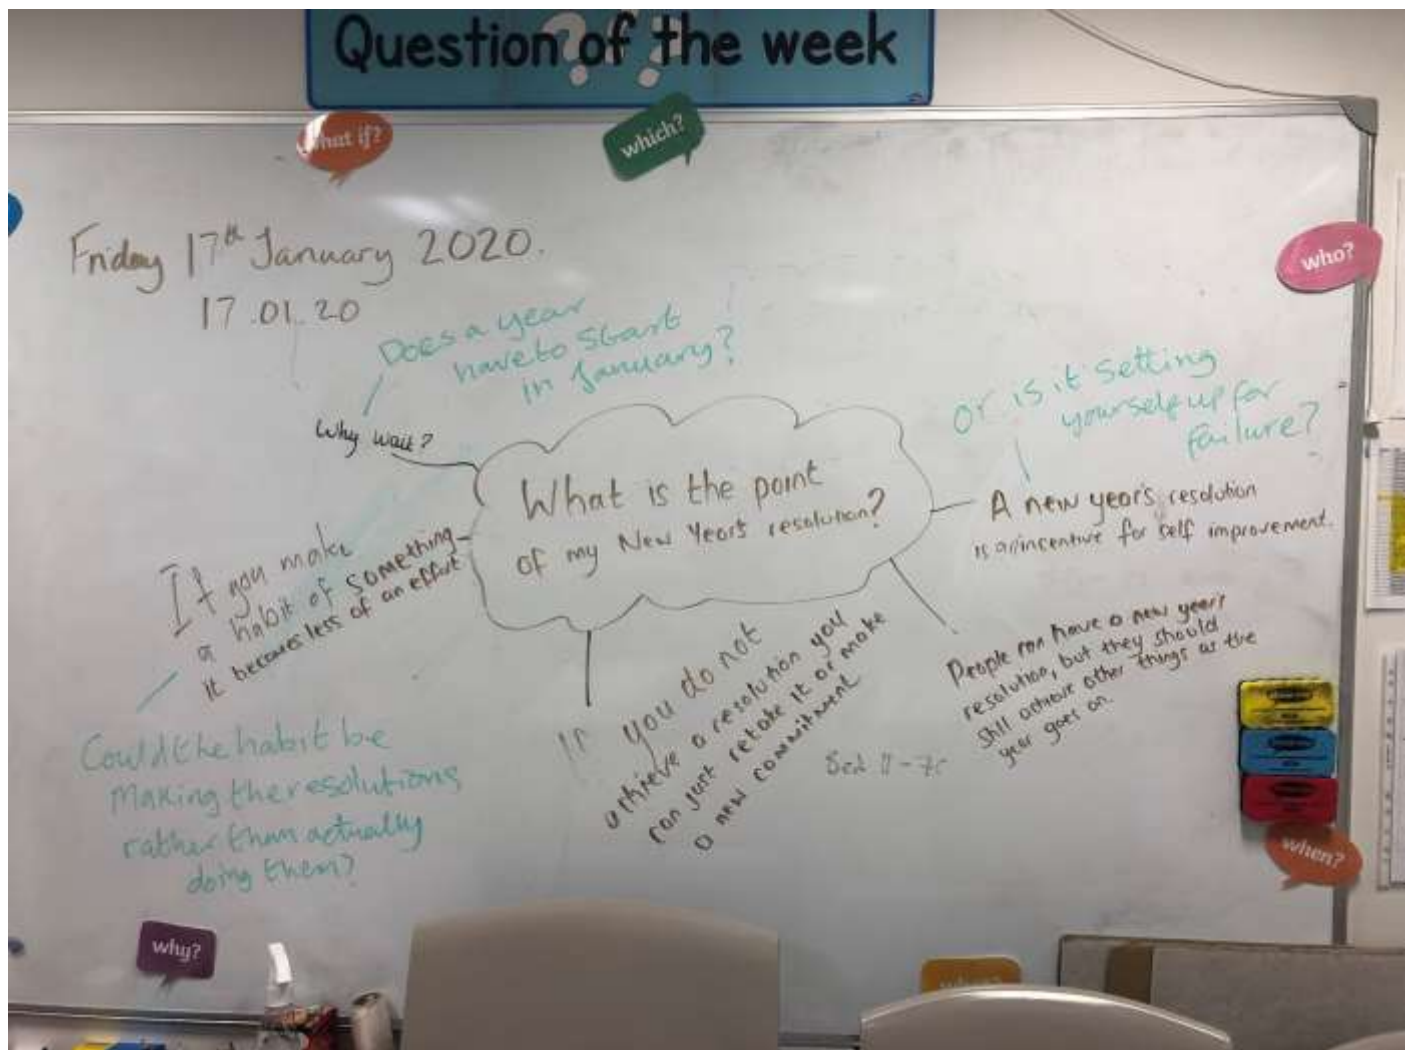 Question of the week
What if?
which?
who?
Friday 17th January 2020.
17.01.20
Does a year
have to start
in January?
Why wait?
Or is it setting
yourself up for
failure?
What is the point
of my New Year's resolution?
A new year's resolution
is an incentive for self improvement.
If you make
a habit of something
it becomes less of an effort
Could the habit be
Making the resolutions
rather than actually
doing them?
If you do not
achieve a resolution you
can just retake it or make
a new commitment
People can have a new year's
resolution, but they should
still achieve other things as the
year goes on.
when?
why?